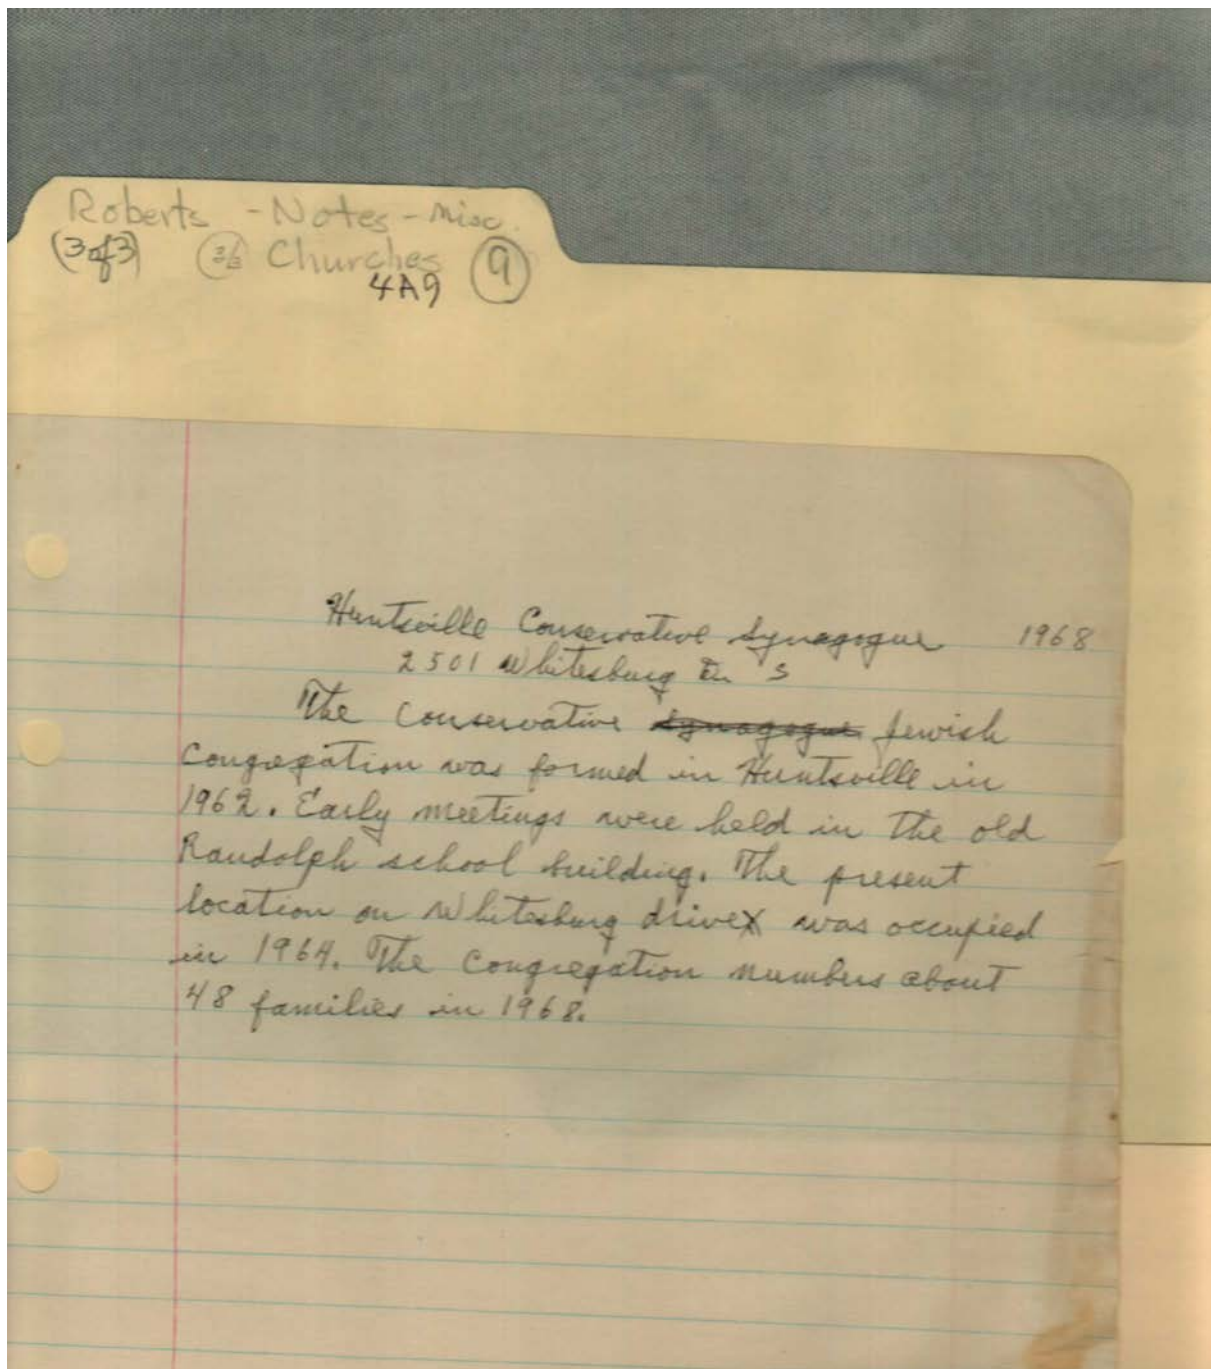 Roberts - Notes - Misc.
(3 of 3) 3/3 Churches 9
4A9
Huntsville Conservative Synagogue 1968
2501 Whitesburg Dr S
The Conservative Synagogue Jewish
Congregation was formed in Huntsville in
1962. Early meetings were held in the old
Randolph school building. The present
location on Whitesburg drive was occupied
in 1964. The Congregation numbers about
48 families in 1968.